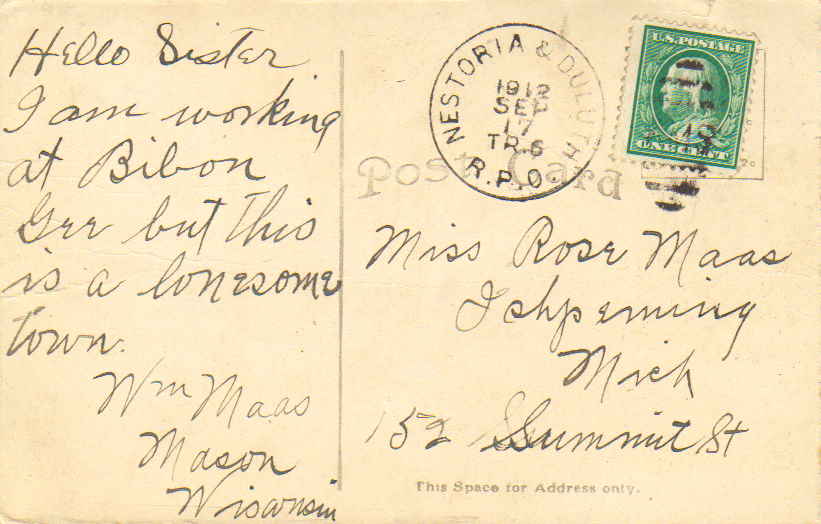 Hello Sister
I am working
at Bibon
Gee but this
is a lonesome
town.
Wm Maas
Mason
Wisconsin
NESTORIA & DULUTH
1912
SEP
17
TR.6
R.P.O.
U.S. POSTAGE
ONE CENT
Post Card
Miss Rose Maas
Ishpeming
Mich
152 Summit St
This Space for Address only.